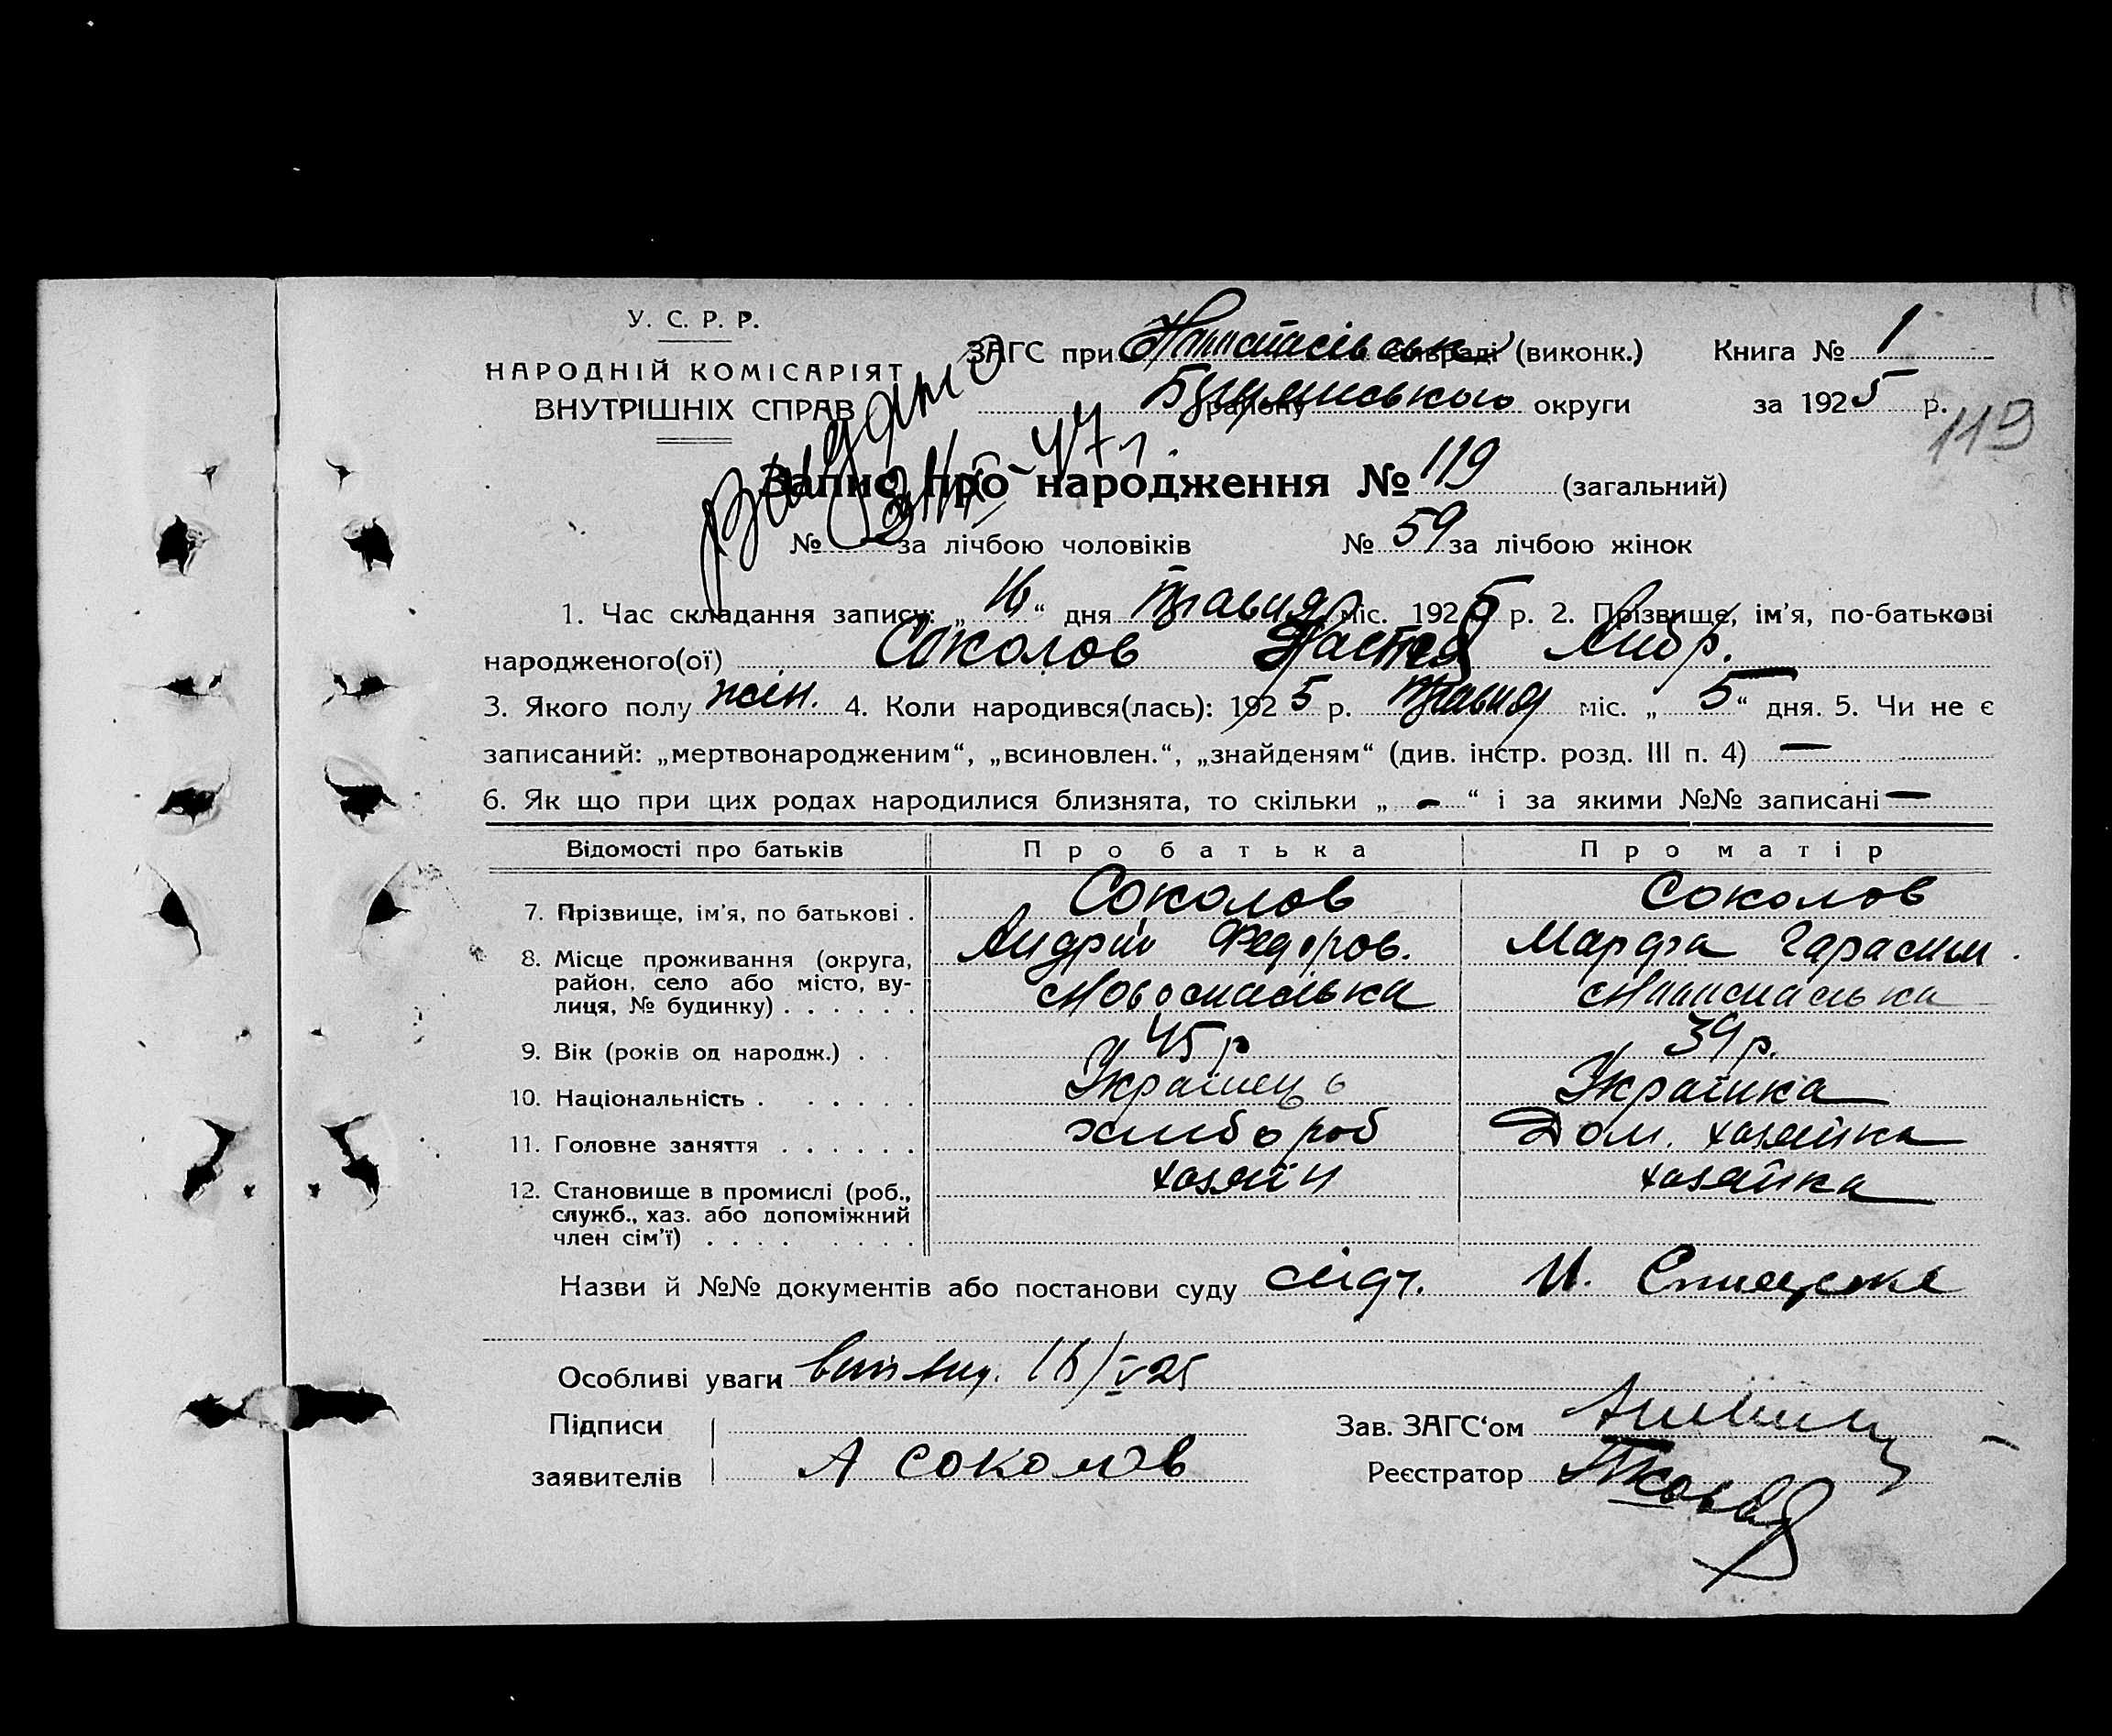 У. С. Р. Р.
НАРОДНІЙ КОМІСАРІЯТ
ВНУТРІШНІХ СПРАВ
ЗАГС при сільраді (виконк.) Книга № 1
району округи за 1925 р.
119
Видано
47 г.
Запис про народження № 119 (загальний)
№ за лічбою чоловіків № 59 за лічбою жінок
1. Час складання запису: „16“ дня травня міс. 1925 р. 2. Прізвище, ім'я, по-батькові
народженого(ої) Соколов Настя Андр.
3. Якого полу жін. 4. Коли народився(лась): 1925 р. травня міс. „5“ дня. 5. Чи не є
записаний: „мертвонародженим“, „всиновлен.“, „знайденям“ (див. інстр. розд. III п. 4) —
6. Як що при цих родах народилися близнята, то скільки „ - “ і за якими №№ записані —
Відомості про батьків Про батька Про матір
7. Прізвище, ім'я, по батькові . Соколов Соколов
Андрій Федоров. Марфа Гарасим.
8. Місце проживання (округа, район, село або місто, вулиця, № будинку) . . . . . .
9. Вік (років од народж.) . . 45 р 39 р.
10. Національність . . . . . . Українець Українка
11. Головне заняття . . . . . . хлібороб Дом. хозяйка
12. Становище в промислі (роб., служб., хаз. або допоміжний член сім'ї) . . . . . . . . хозяїн хозяйка
Назви й №№ документів або постанови суду И.
Особливі уваги 16/V 25
Підписи Зав. ЗАГС'ом
заявителів А Соколов Реєстратор